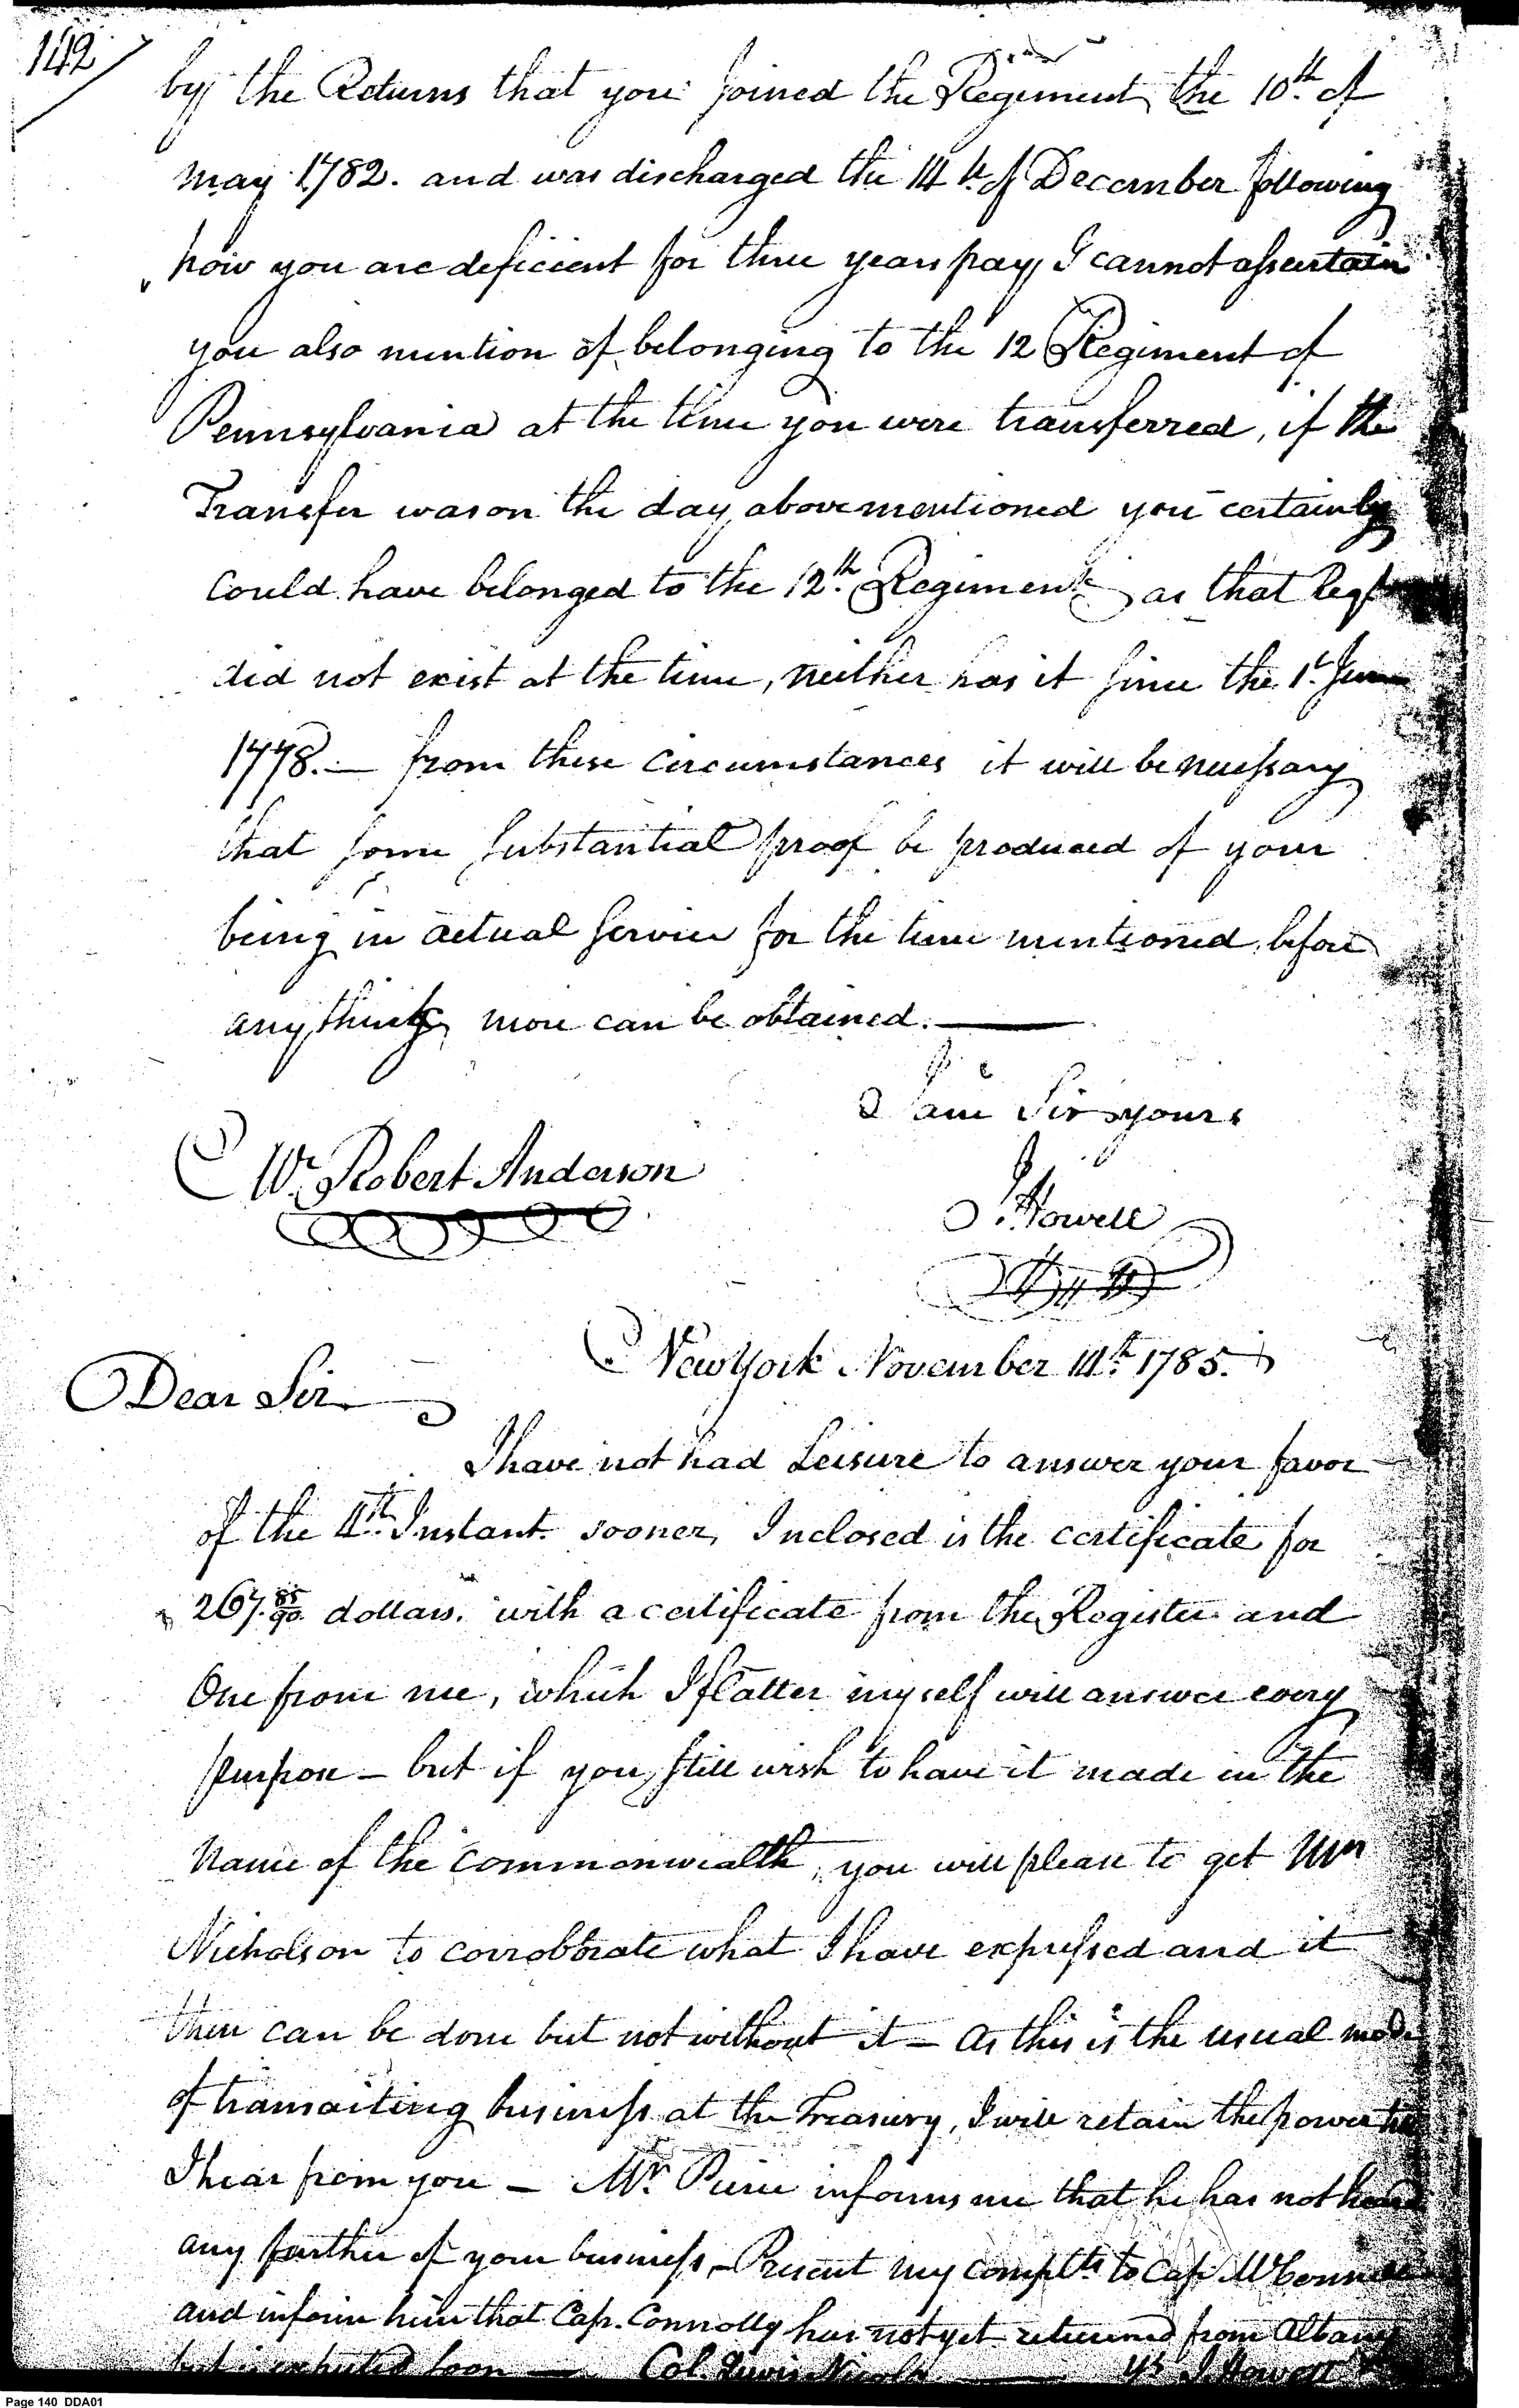 142
by the Returns that you joined the Regiment the 10th of
may 1782. and was discharged the 14th of December following
how you are deficient for three years pay I cannot assertain
you also mention of belonging to the 12 Regiment of
Pennsylvania at the time you were transferred, if the
Transfer was on the day above mentioned you certainly
Could have belonged to the 12th Regiment as that Regt
did not exist at the time, neither has it since the 1st
1778. — from these circumstances it will be necessary
that some substantial proof be produced of your
being in actual service for the time mentioned before
any thing more can be obtained. —
I am Sir yours
Mr. Robert Anderson
J. Howell
New York November 14th 1785.
Dear Sir
I have not had Leisure to answer your favor
of the 4th Instant sooner, Inclosed is the certificate for
267. 85/90 dollars. with a certificate from the Register and
One from me, which I flatter myself will answer every
purpose — but if you still wish to have it made in the
Name of the commonwealth, you will please to get
Nicholson to corroborate what I have expressed and it
then can be done but not without it — As this is the usual mode
of transacting business at the Treasury, I will retain the power
I hear from you — Mr. Pierce informs me that he has not heard
any further of your business, — Present my complts to Cap.
and inform him that Cap. Connolly has not yet returned from Albany
but is expected soon — Col. Lewis Nicola Ys J Howell
Page 140 DDA01